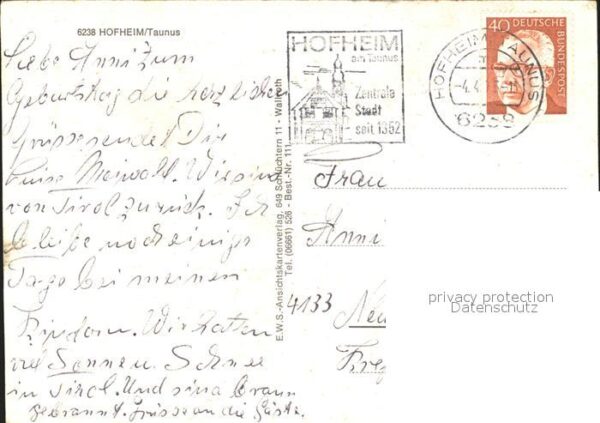 6238 HOFHEIM/Taunus
Liebe Anni Zum
Geburtstag die herzlichen
Grüsse sendet Dir
Luise Maiwald. Wir sind
von Tirol zurück. Ich
bleibe noch einige
Tage bei meinen
Kindern. Wir hatten
viel Sonne u. Schnee
in Tirol. Und sind braun
gebrannt. Grüsse an die Gäste.
E.W.S.-Ansichtskartenverlag, 649 Schlüchtern 11 - Wallroth
Tel. (06661) 526 - Best.-Nr. 111
HOFHEIM
am Taunus
Zentrale
Stadt
seit 1352
HOFHEIM TAUNUS
-4.4
6238
40 DEUTSCHE
BUNDESPOST
Frau
Anni
4133 Neu
privacy protection
Datenschutz